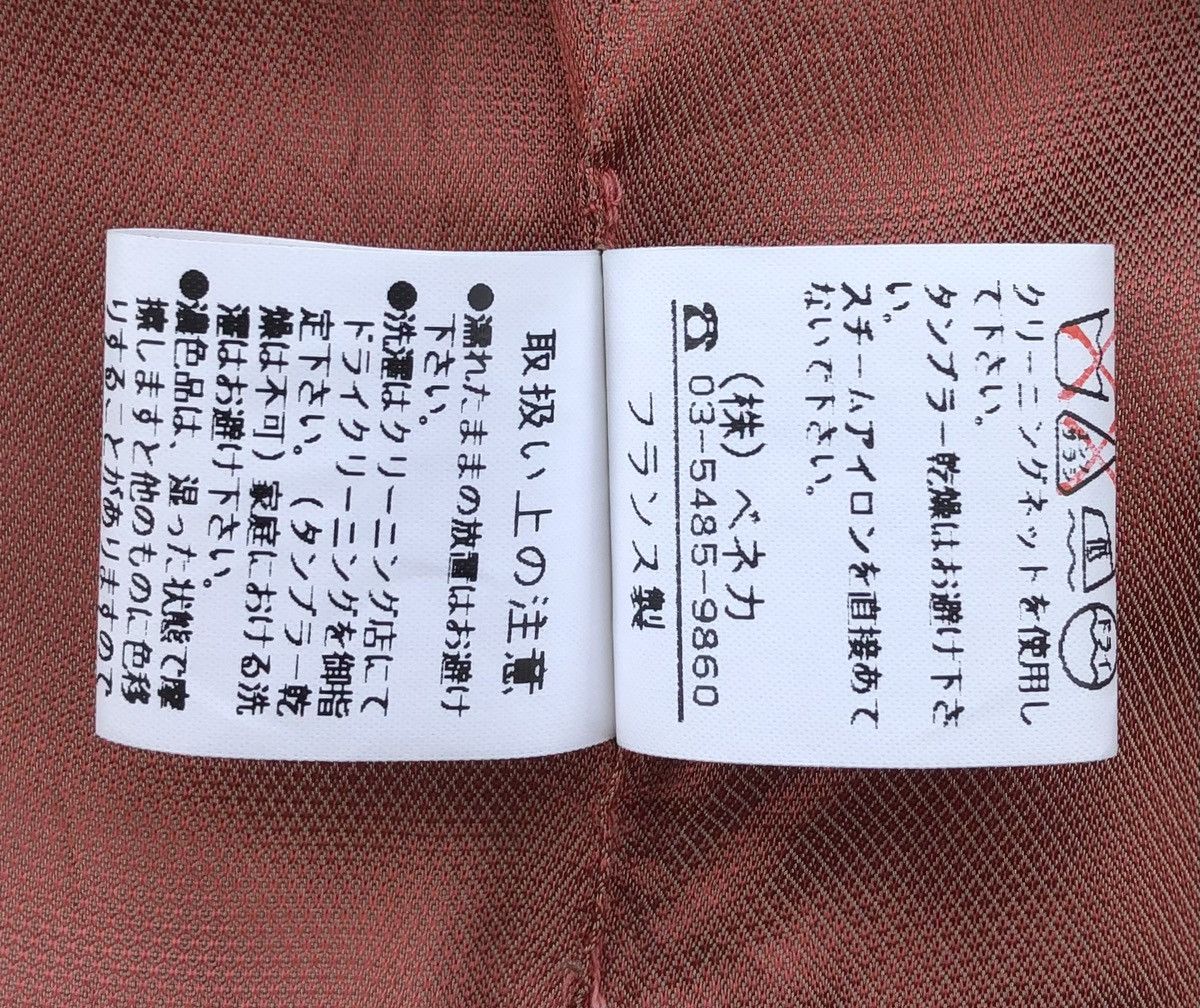 低
ドライ
クリーニングネットを使用し
て下さい。
タンブラー乾燥はお避け下さ
い。
スチームアイロンを直接あて
ないで下さい。
(株)ベネカ
☎ 03-5485-9860
フランス製
取扱い上の注意
●濡れたままの放置はお避け
下さい。
●洗濯はクリーニング店にて
ドライクリーニングを御指
定下さい。(タンブラー乾
燥は不可)家庭における洗
濯はお避け下さい。
●濃色品は、湿った状態で摩
擦しますと他のものに色移
りすることがありますので